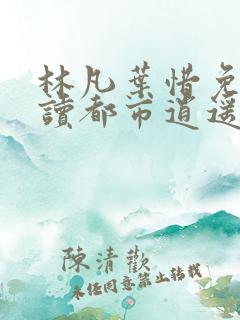 林凡葉惜免
讀都市逍遥
陳清歡
未经同意禁止转载